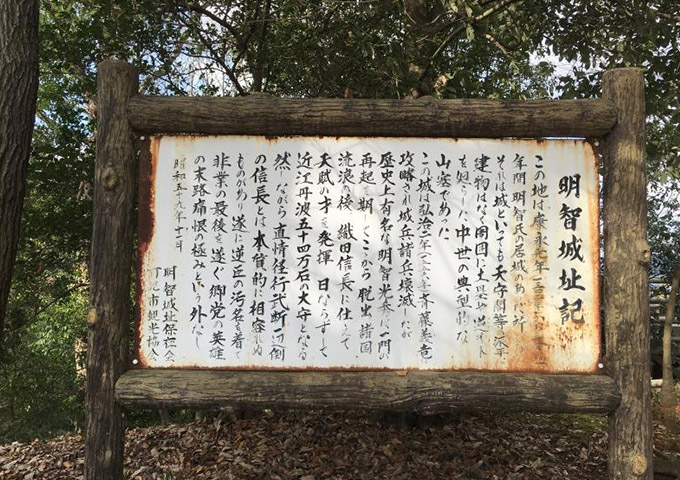 明智城址記
この地は康永元年
年間明智氏の居城があった所
それは城といっても天守閣等の派手
建物はなく周囲に土塁
を廻らした中世の典型的な
山塞であった
この城は弘治二年 斉藤義竜
攻略され城兵諸共壊滅したが
歴史上有名な明智光秀は一門の
再起を期してここから脱出諸国
流浪の後織田信長に仕えて
天賦の才を発揮日ならずして
近江丹波五十四万石の大守となる
然しながら直情径行武断一辺倒
の信長とは本質的に相容れぬ
ものがあり遂に逆臣の汚名を着て
非業の最後を遂ぐ郷党の英雄
の末路痛恨の極みという外なし
昭和五十九年十二月
明智城址保存会
可児市観光協会